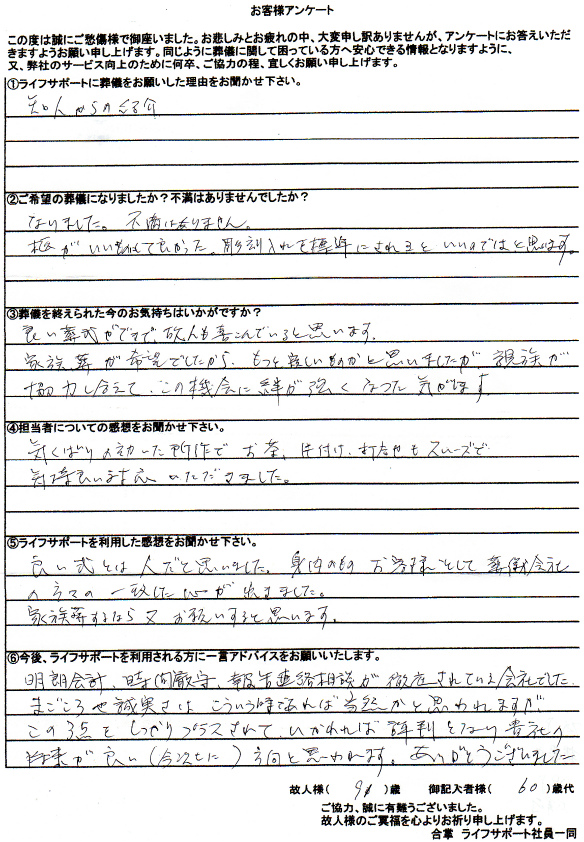 お客様アンケート
この度は誠にご愁傷様で御座いました。お悲しみとお疲れの中、大変申し訳ありませんが、アンケートにお答えいただ
きますようお願い申し上げます。同じように葬儀に関して困っている方へ安心できる情報となりますように、
又、弊社のサービス向上のために何卒、ご協力の程、宜しくお願い申し上げます。
①ライフサポートに葬儀をお願いした理由をお聞かせ下さい。
知人からの紹介
②ご希望の葬儀になりましたか？不満はありませんでしたか？
なりました。不満はありません。
柩がいいものでて良かった。彫刻入れを標準にされるといいのではと思います。
③葬儀を終えられた今のお気持ちはいかがですか？
良い葬式ができて、故人も喜こんでいると思います。
家族葬が希望でしたから、もっと寂しいものかと思いましたが親族が
協力し合えて、この機会に絆が強くなった気がします
④担当者についての感想をお聞かせ下さい。
気くばりの効いた所作でお茶、片付け、打合せもスムーズで
気持良い いただきました。
⑤ライフサポートを利用した感想をお聞かせ下さい。
良い式とは人だと思いました。身内のもの お客様 として葬儀会社
の方々の一致した心が出ました。
家族葬するなら又お願いすると思います。
⑥今後、ライフサポートを利用される方に一言アドバイスをお願いいたします。
明朗会計、時間厳守、報告連絡相談が徹底されている会社でした
まごころや誠実さはこういう時であれば当然かと思われますが
この3点をしっかりプラスされて、いかれれば評判となり貴社の
将来が良い( )方向と思われます。ありがとうございました
故人様( 9 )歳 御記入者様( 60 )歳代
ご協力、誠に有難うございました。
故人様のご冥福を心よりお祈り申し上げます。
合掌 ライフサポート社員一同